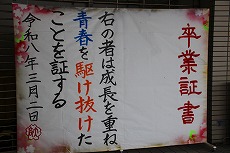 卒業証書
右の者は成長を重ね、
青春を駆け抜けた
ことを証する
令和八年三月二日